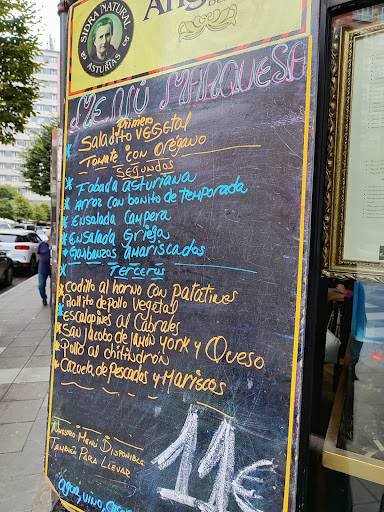 SIDRA NATURAL
ASTURIAS
MENÚ MARQUESA
Primero
Saladito VEGETAL
Tomate con orégano
SEGUNDOS
* Fabada asturiana
* Arroz con bonito de temporada
* Ensalada Campera
* Ensalada Griega
* Garbanzos amariscados
Terceros
* Codillo al horno con patatines
* Rollito de pollo Vegetal
* Escalopines al Cabrales
* San Jacobo de jamón York y Queso
* Pollo al chilindrón
* Cazuela de Pescados y Mariscos
Nuestro Menú Disponible
También Para Llevar
11€
agua, vino,